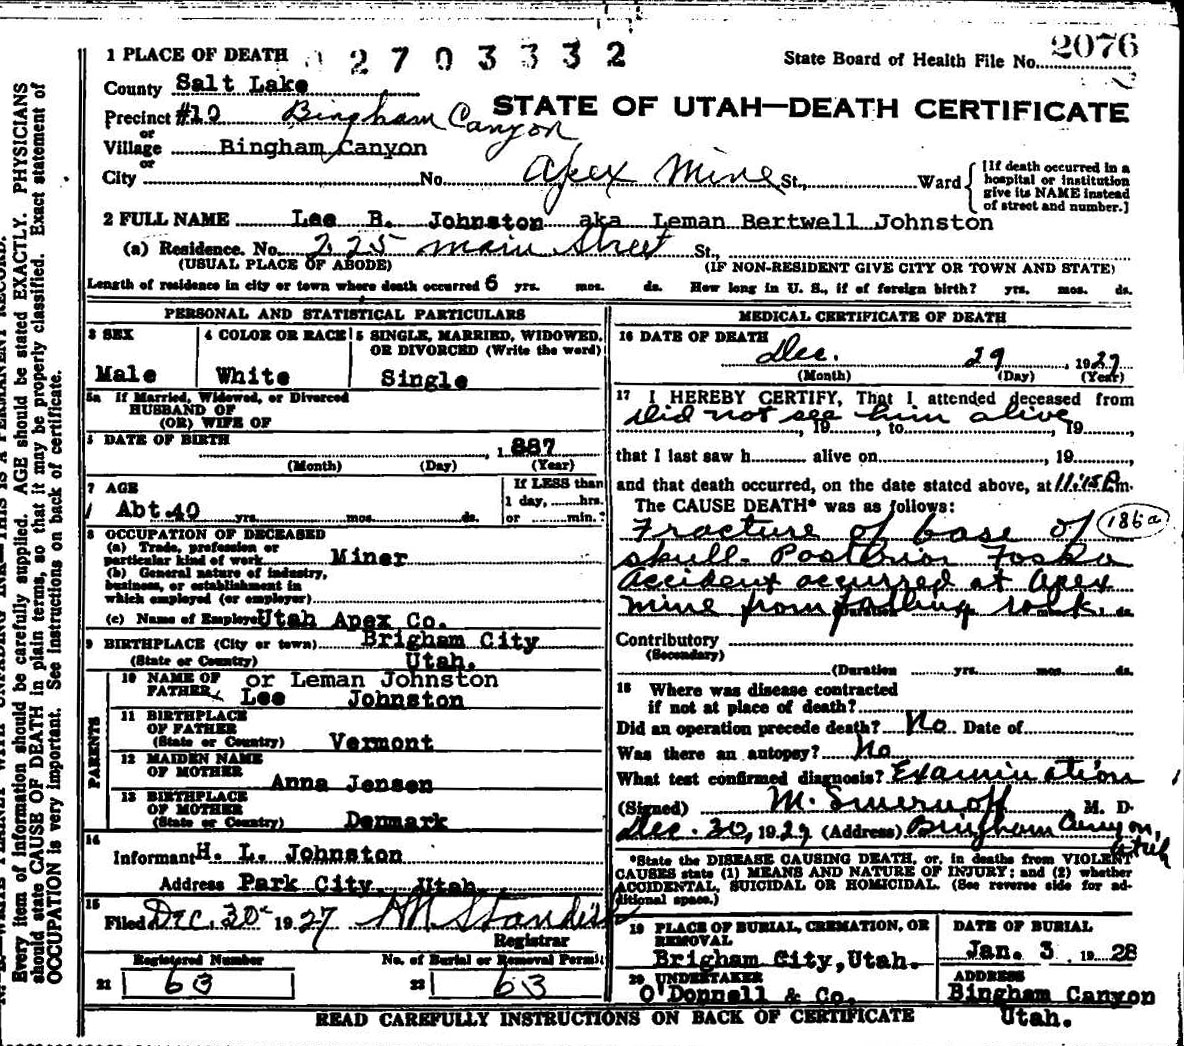 1 PLACE OF DEATH 2703332 State Board of Health File No. 2076
County Salt Lake
STATE OF UTAH—DEATH CERTIFICATE
Precinct #10 Bingham Canyon
or
Village Bingham Canyon
or
City No. Apex Mine St., Ward
[If death occurred in a
hospital or institution
give its NAME instead
of street and number.]
2 FULL NAME Lee B. Johnston aka Leman Bertwell Johnston
(a) Residence. No. 225 main Street St.,
(USUAL PLACE OF ABODE) (IF NON-RESIDENT GIVE CITY OR TOWN AND STATE)
Length of residence in city or town where death occurred 6 yrs. mos. ds. How long in U. S., if of foreign birth? yrs. mos. ds.
PERSONAL AND STATISTICAL PARTICULARS
3 SEX
Male
4 COLOR OR RACE
White
5 SINGLE, MARRIED, WIDOWED,
OR DIVORCED (Write the word)
Single
5a If Married, Widowed, or Divorced
HUSBAND OF
(OR) WIFE OF
DATE OF BIRTH
, 1887
(Month) (Day) (Year)
7 AGE
Abt.40 yrs. mos. ds.
If LESS than
1 day, hrs.
or min.
8 OCCUPATION OF DECEASED
(a) Trade, profession or
particular kind of work Miner
(b) General nature of industry,
business, or establishment in
which employed (or employer)
(c) Name of Employer Utah Apex Co.
9 BIRTHPLACE (City or town) Brigham City
(State or Country) Utah.
PARENTS
10 NAME OF or Leman Johnston
FATHER Lee Johnston
11 BIRTHPLACE
OF FATHER
(State or Country) Vermont
12 MAIDEN NAME
OF MOTHER
Anna Jensen
13 BIRTHPLACE
OF MOTHER
(State or Country) Denmark
14
Informant H. L. Johnston
Address Park City, Utah.
15
Filed Dec. 30 1927 HM Standish
Registrar
Registered Number No. of Burial or Removal Permit
21 63 22 63
MEDICAL CERTIFICATE OF DEATH
16 DATE OF DEATH
Dec. 29, 1927
(Month) (Day) (Year)
17 I HEREBY CERTIFY, That I attended deceased from
Did not see him alive
, 19 , to , 19 ,
that I last saw h alive on , 19 ,
and that death occurred, on the date stated above, at 11:15 Pm.
The CAUSE DEATH* was as follows:
Fracture of base of 186a
skull. Posterior Foska
accident accurred at Apex
mine from falling rock. ds.
Contributory
(Secondary)
(Duration yrs. mos. ds.
18 Where was disease contracted
if not at place of death?
Did an operation precede death? No Date of
Was there an autopsy? No
What test confirmed diagnosis? Examination
(Signed) M. Smernoff M. D.
Dec. 30, 1927 (Address) Bingham Canyon,
Utah
*State the DISEASE CAUSING DEATH, or, in deaths from VIOLENT
CAUSES state (1) MEANS AND NATURE OF INJURY; and (2) whether
ACCIDENTAL, SUICIDAL OR HOMICIDAL. (See reverse side for ad-
ditional space.)
19 PLACE OF BURIAL, CREMATION, OR
REMOVAL
Brigham City, Utah.
DATE OF BURIAL
Jan. 3 19 28
20 UNDERTAKER
O'Donnell & Co.
ADDRESS
Bingham Canyon
Utah.
READ CAREFULLY INSTRUCTIONS ON BACK OF CERTIFICATE
Every item of information should be carefully supplied. AGE should be stated EXACTLY. PHYSICIANS
should state CAUSE OF DEATH in plain terms, so that it may be properly classified. Exact statement of
OCCUPATION is very important. See instructions on back of certificate.